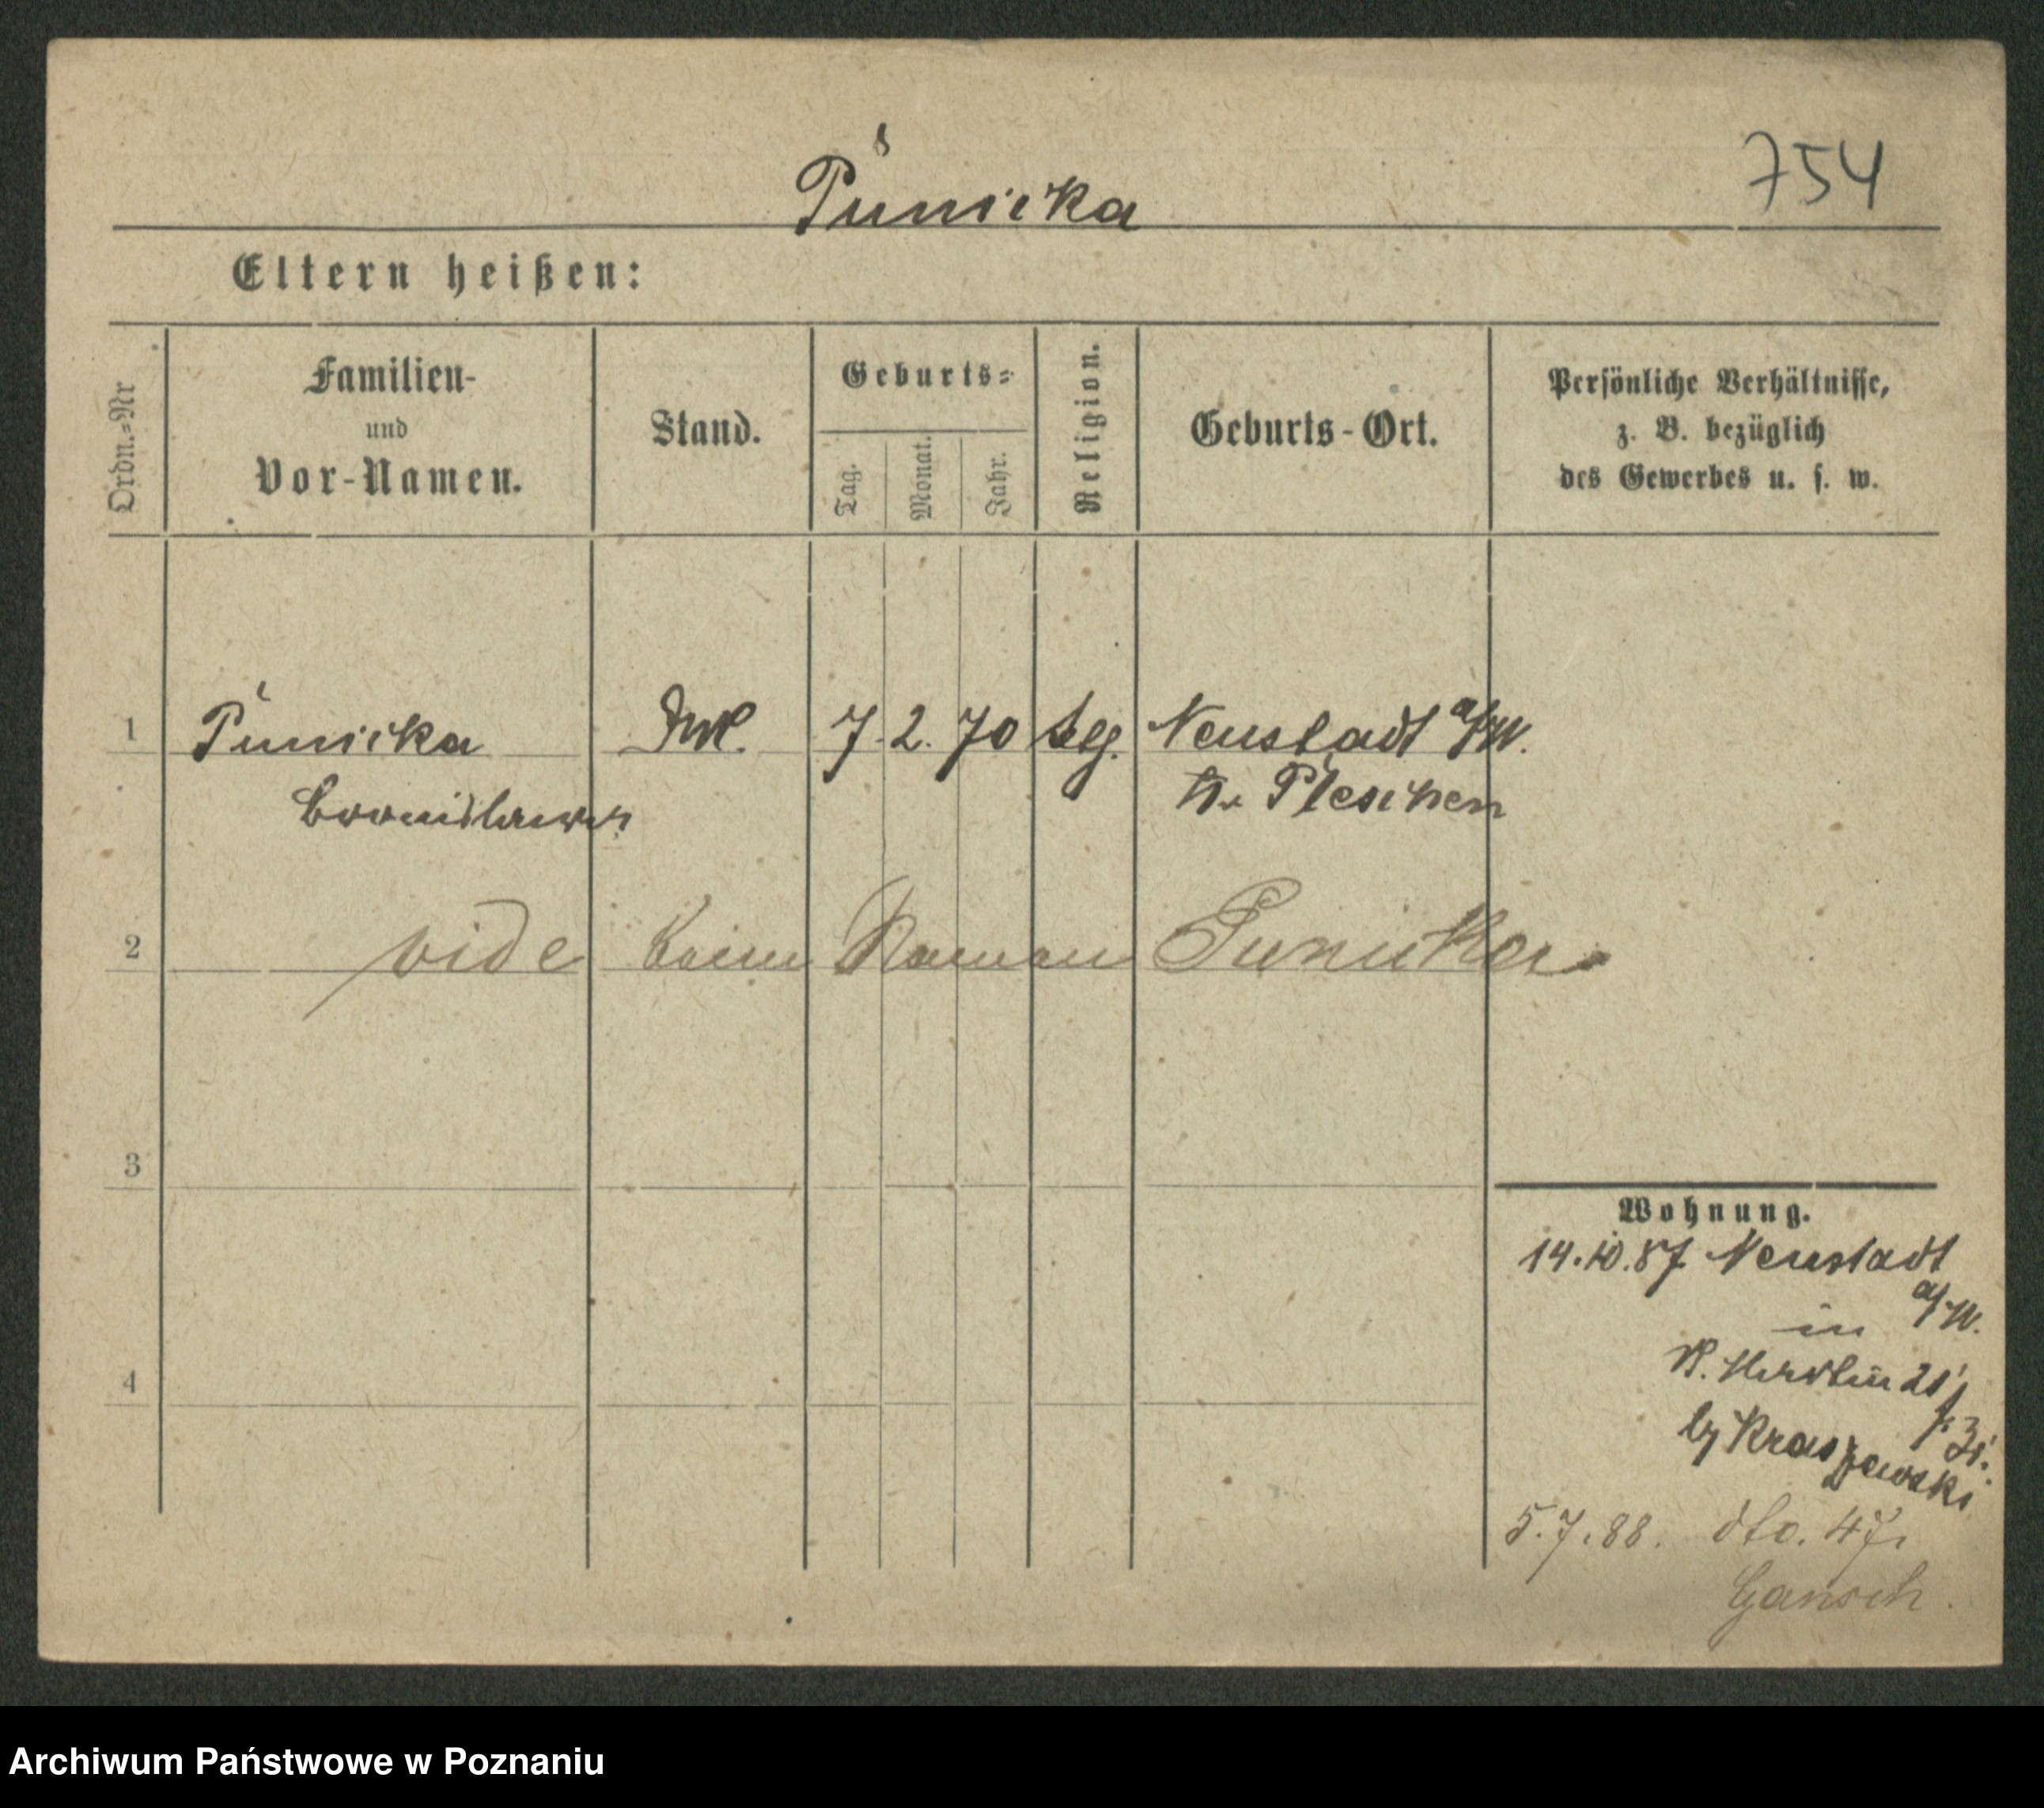 Punicka
754
Eltern heißen:
Ordn.-Nr
Familien-
und
Vor-Namen.
Stand.
Geburts-
Tag.
Monat.
Jahr.
Religion.
Geburts-Ort.
Persönliche Verhältnisse,
z. B. bezüglich
des Gewerbes u. s. w.
1 Punicka 7. 2. 70 Neustadt a/W.
Bronislawa Kr. Pleschen
2 vide beim Namen Punicka
3
4
Wohnung.
14.10.87 Neustadt
a/W.
in
St. Martin 21
b/ Kraszewski
5.7.88. dto. 47
Gansch.
Archiwum Państwowe w Poznaniu